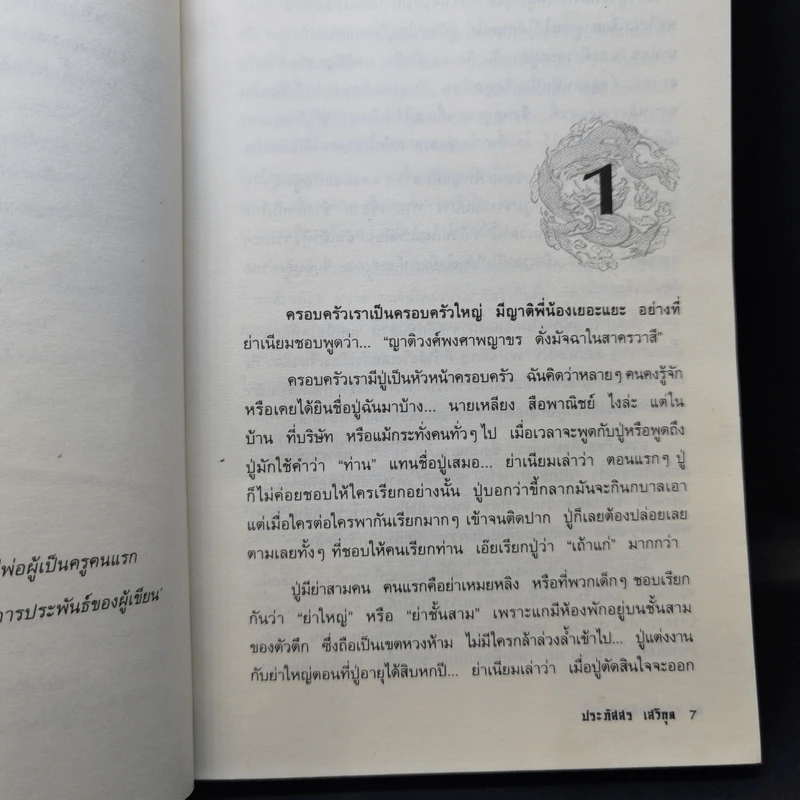 พ่อผู้เป็นครูคนแรก
การประพันธ์ของผู้เขียน'
1
ครอบครัวเราเป็นครอบครัวใหญ่ มีญาติพี่น้องเยอะแยะ อย่างที่
ย่าเนียมชอบพูดว่า... "ญาติวงศ์พงศาพญาขร ดั่งมัจฉาในสาครวาสี"
ครอบครัวเรามีปู่เป็นหัวหน้าครอบครัว ฉันคิดว่าหลายๆ คนคงรู้จัก
หรือเคยได้ยินชื่อปู่ฉันมาบ้าง... นายเหลียง สือพาณิชย์ ไงล่ะ แต่ใน
บ้าน ที่บริษัท หรือแม้กระทั่งคนทั่วๆ ไป เมื่อเวลาจะพูดกับปู่หรือพูดถึง
ปู่มักใช้คำว่า "ท่าน" แทนชื่อปู่เสมอ... ย่าเนียมเล่าว่า ตอนแรกๆ ปู่
ก็ไม่ค่อยชอบให้ใครเรียกอย่างนั้น ปู่บอกว่าขี้กลากมันจะกินกบาลเอา
แต่เมื่อใครต่อใครพากันเรียกมากๆ เข้าจนติดปาก ปู่ก็เลยต้องปล่อยเลย
ตามเลยทั้งๆ ที่ชอบให้คนเรียกท่าน เอ๊ยเรียกปู่ว่า "เถ้าแก่" มากกว่า
ปู่มีย่าสามคน คนแรกคือย่าเหมยหลิง หรือที่พวกเด็กๆ ชอบเรียก
กันว่า "ย่าใหญ่" หรือ "ย่าชั้นสาม" เพราะแกมีห้องพักอยู่บนชั้นสาม
ของตัวตึก ซึ่งถือเป็นเขตหวงห้าม ไม่มีใครกล้าล่วงล้ำเข้าไป... ปู่แต่งงาน
กับย่าใหญ่ตอนที่ปู่อายุได้สิบหกปี... ย่าเนียมเล่าว่า เมื่อปู่ตัดสินใจจะออก
ประภัสสร เสวิกุล 7